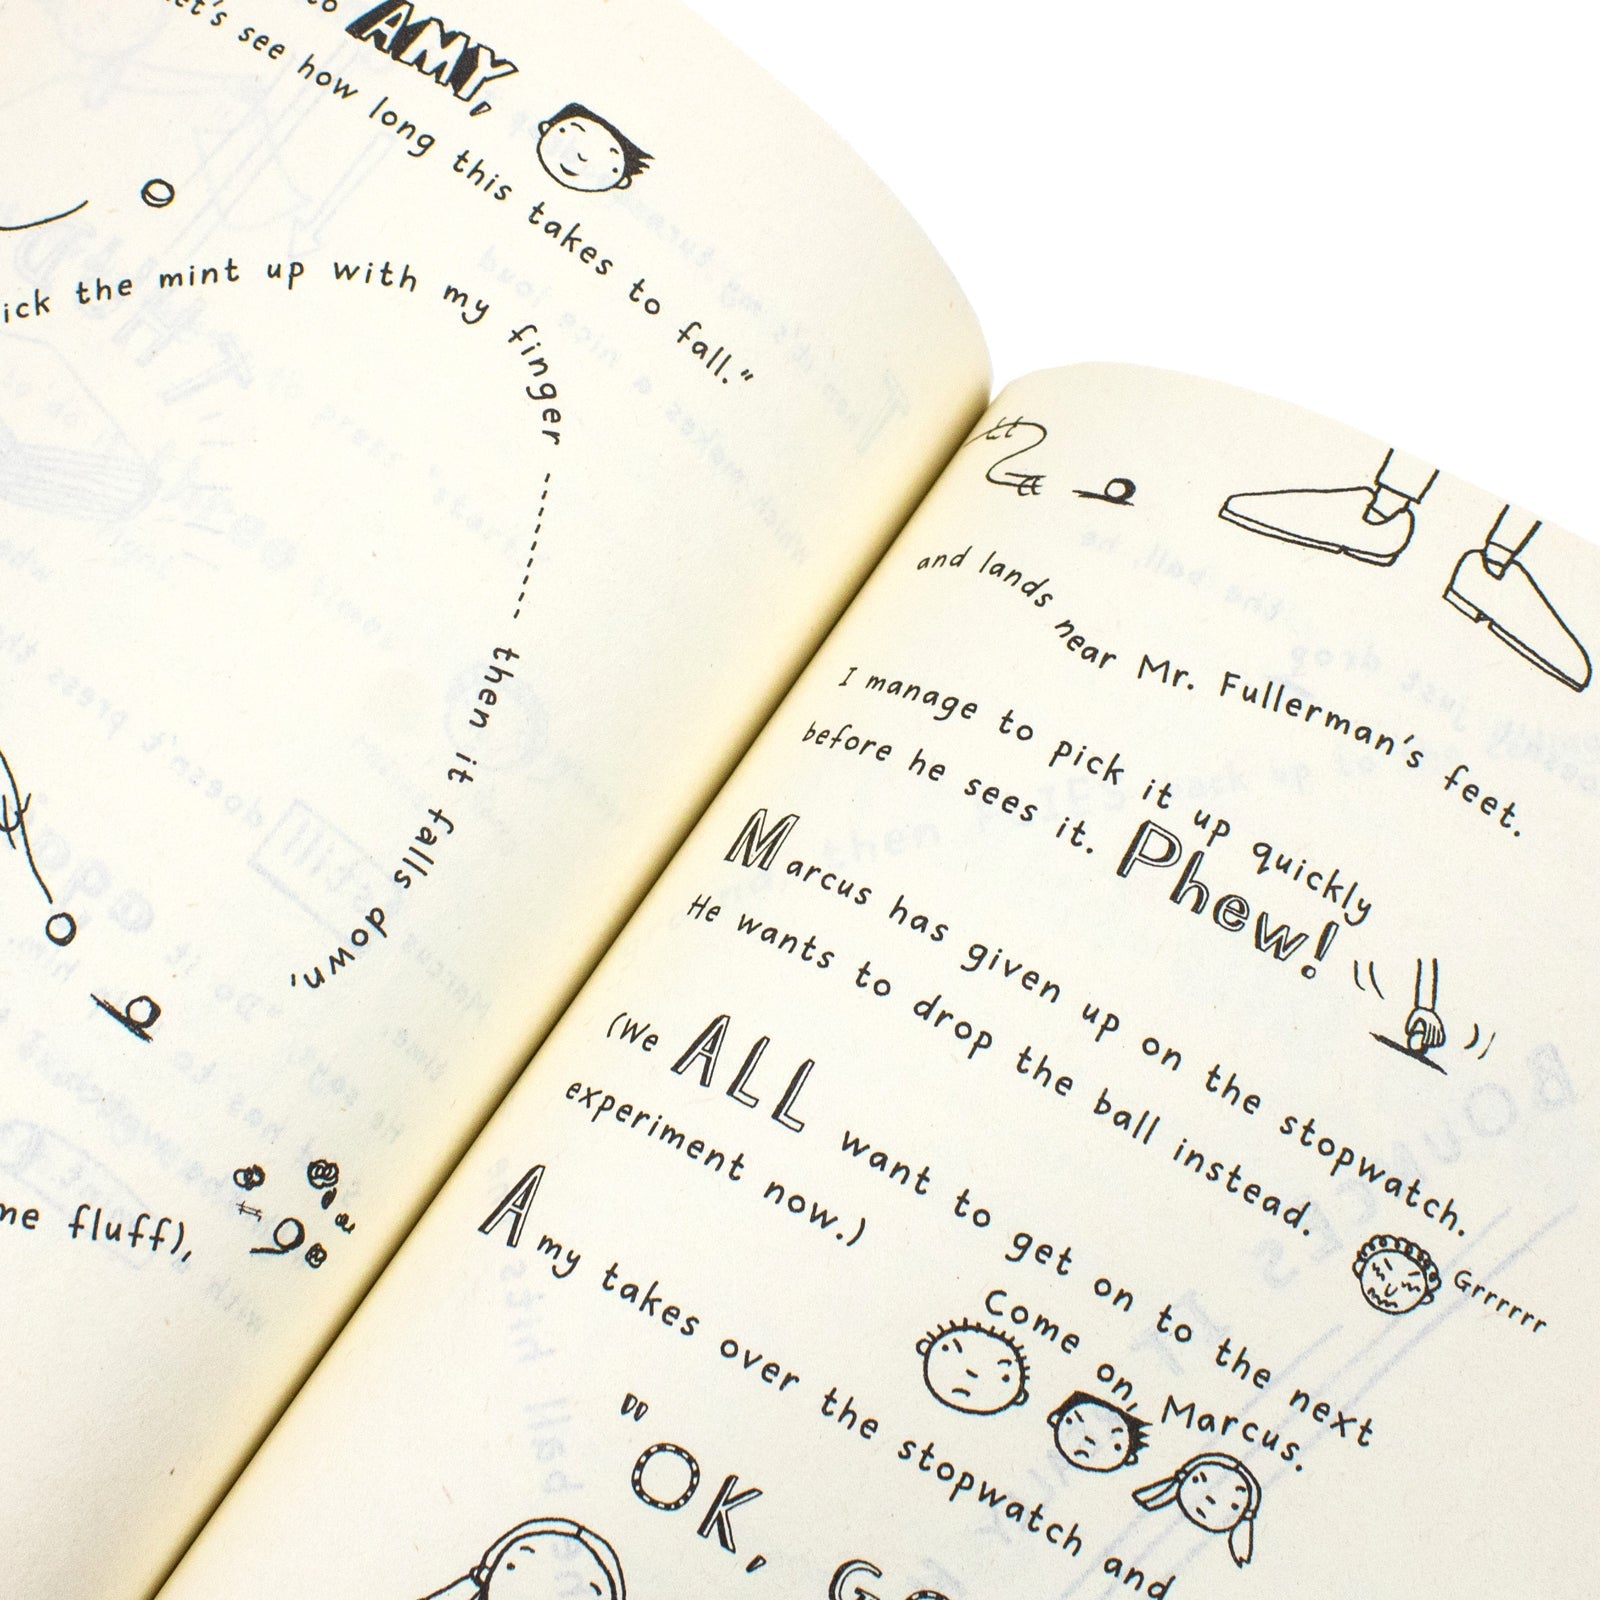 to AMY,
let's see how long this takes to fall."
ick the mint up with my finger
then it falls down,
me fluff),
and lands near Mr. Fullerman's feet.
I manage to pick it up quickly
before he sees it. Phew!
Marcus has given up on the stopwatch.
He wants to drop the ball instead.
Grrrrrr
(We ALL want to get on to the next
experiment now.)
Come on, Marcus.
Amy takes over the stopwatch and
"OK,